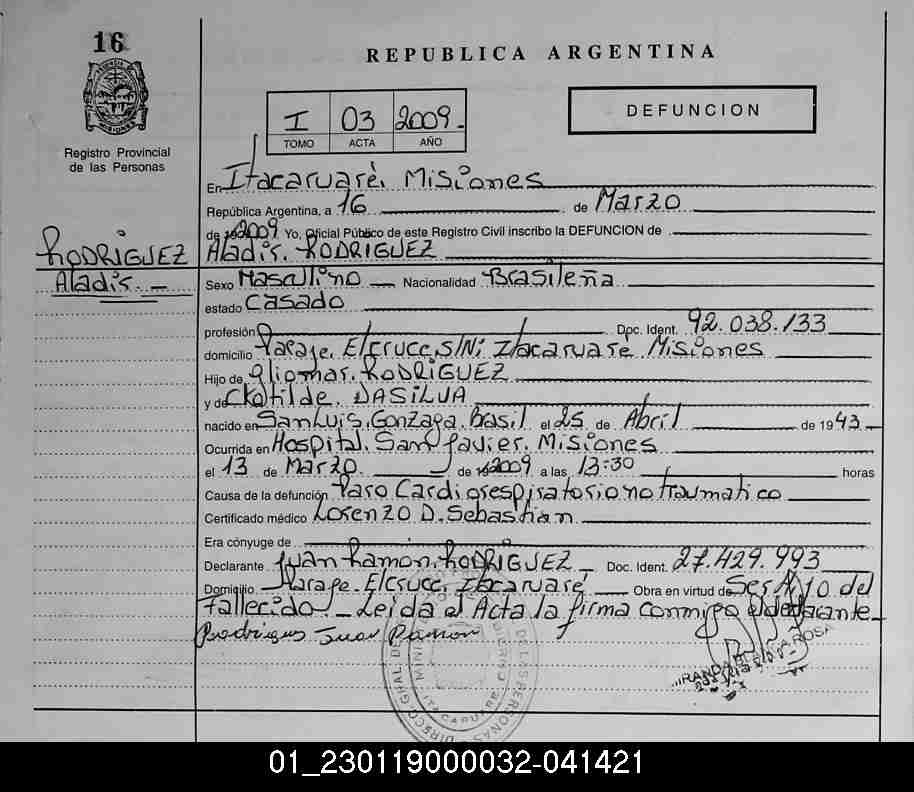 16
REPUBLICA ARGENTINA
MISIONES
Registro Provincial
de las Personas
I 03 2009.-
TOMO ACTA AÑO
DEFUNCION
En Itacaruaré, Misiones
República Argentina, a 16 de Marzo
de 2009 Yo, Oficial Público de este Registro Civil inscribo la DEFUNCION de
RODRIGUEZ Aladis. RODRIGUEZ
Aladis.-
Sexo Masculino Nacionalidad Brasileña
estado Casado
profesión Doc. Ident. 92.038.133
domicilio Paraje. El cruce, S/N; Itacaruaré Misiones
Hijo de Gliomar. RODRIGUEZ
y de Clotilde. DASILVA
nacido en San Luis, Gonzaga, Basil. el 25 de Abril de 1943.-
Ocurrida en Hospital. San Javier. Misiones
el 13 de Marzo de 2009 a las 13:30 horas
Causa de la defunción Paro Cardiorespiratorio no traumatico
Certificado médico Lorenzo D. Sebastian
Era cónyuge de
Declarante Juan Ramón. RODRIGUEZ Doc. Ident. 27.429.993
Domicilio Paraje. El cruce, Itacaruaré Obra en virtud de Ser Hijo del
Fallecido - Leida el Acta la firma conmigo el declarante-
Rodrigues Juan Ramon
DE LAS PERSONAS
ITACARUARE
01_230119000032-041421